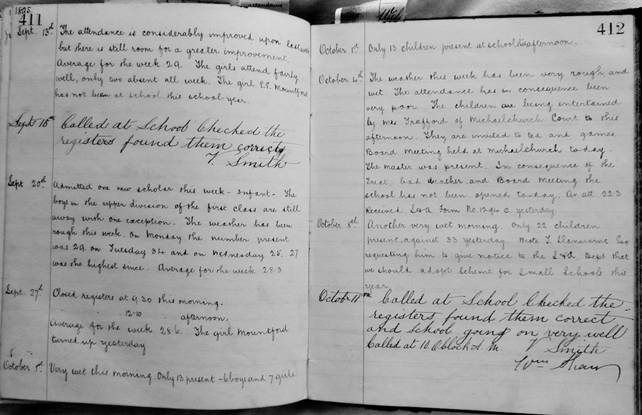 1895
411
Sept. 13th The attendance is considerably improved upon last week
but there is still room for a greater improvement
Average for the week 29. The girls attend fairly
well, only two absent all week. The girl Mountford
has not been at school this school year.
Sept 16th Called at School Checked the
registers found them correct
V. Smith
Sept 20th Admitted one new scholar this week - infant - The
boys in the upper division of the first class are still
away with one exception. The weather has been
rough this week on Monday the number present
was 29 on Tuesday 34 and on Wednesday 28, 27
was the highest since. Average for the week 28.3
Sept. 27th Closed registers at 9.30 this morning.
" 12-10 " afternoon.
Average for the week 28.6. The girl Mountford
turned up yesterday
October 1st Very wet this morning. Only 13 present - 6 boys and 7 girls
412
October 1st Only 13 children present at school this afternoon.
October 4th The weather this week has been very rough, and
wet. The attendance has in consequence been
very poor. The children are being entertained
by Mrs Trafford of Michaelchurch Court to this
afternoon. They are invited to tea and games
Board Meeting held at Michaelchurch today.
The master was present. In consequence of the
Treat, bad weather, and Board Meeting the
school has not been opened today. Av att 22.3
Received Form No. yesterday.
October 8th Another very wet morning. Only 22 children
present, against 33 yesterday. Wrote
requesting him to give notice to the Dept that
we should adopt scheme for Small Schools this
year.
October 11th Called at School Checked the
registers found them correct
and School going on very well
Called at 10 Oclock a M. V Smith
Wm Shaw